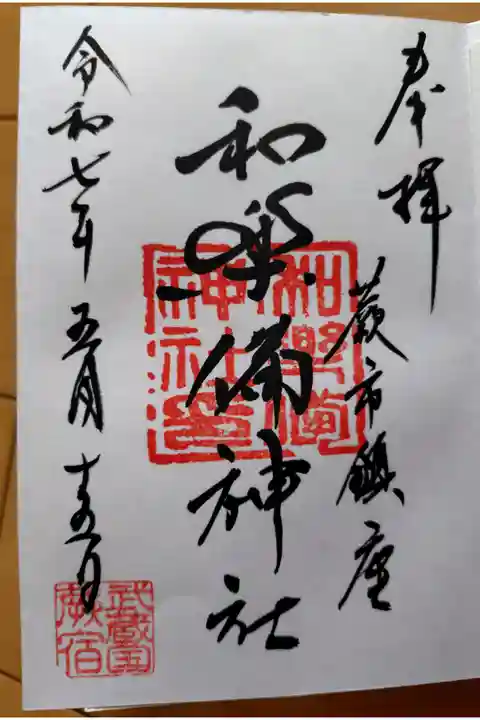 奉拝
蕨市鎮座
和楽備神社
和樂備
神社印
令和七年五月十五日
武蔵国
蕨宿